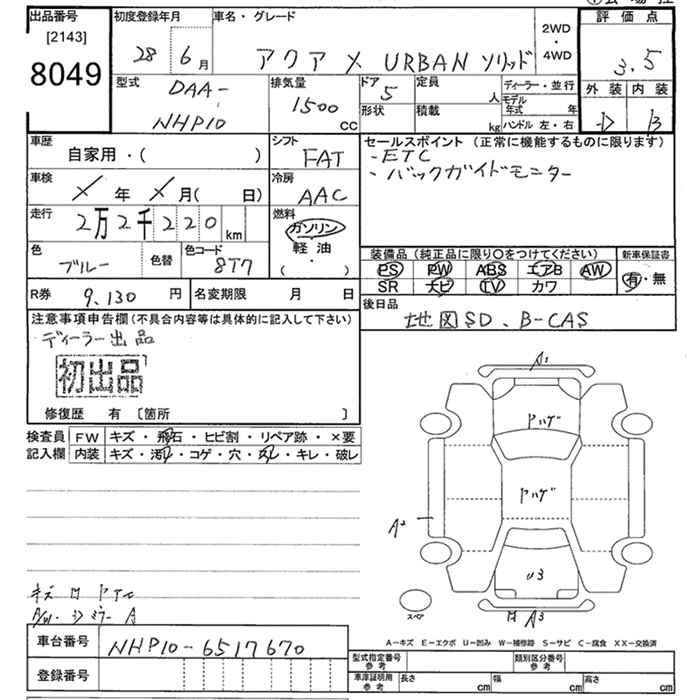 出品番号
[2143]
8049
初度登録年月
28 6月
車名・グレード
アクア X URBAN ソリッド
2WD
・
4WD
評価点
3.5
型式
DAA-
NHP10
排気量
1500
cc
ドア
5
形状
定員
人
積載
kg
ディーラー・並行
モデル年式 年
ハンドル 左・右
外装 内装
D B
車歴
自家用・( )
シフト
FAT
車検
X年 X月( 日)
冷房
AAC
走行
2万2千220km
燃料
ガソリン
軽油
・
( )
色
ブルー
色替
色コード
8T7
R券
9,130円
名変期限 月 日
セールスポイント(正常に機能するものに限ります)
・ETC
・バックガイドモニター
装備品(純正品に限り〇をつけてください)
PS PW ABS エアB AW
SR ナビ TV カワ
新車保証書
有・無
後日品
地図SD、B-CAS
注意事項申告欄(不具合内容等は具体的に記入して下さい)
ディーラー出品
初出品
修復歴 有 [箇所 ]
検査員
記入欄
FW キズ・飛石・ヒビ割・リペア跡・×要
内装 キズ・汚れ・コゲ・穴・凹・キレ・破レ
A1
ヤハゲ
ヤハゲ
A2
U3
A3
スペア
A-キズ E-エクボ U-凹み W-補修跡 S-サビ C-腐食 XX-交換済
車台番号
NHP10-6517670
登録番号
型式指定番号
参考
類別区分番号
参考
車庫証明用
参考
長さ cm
幅 cm
高さ cm